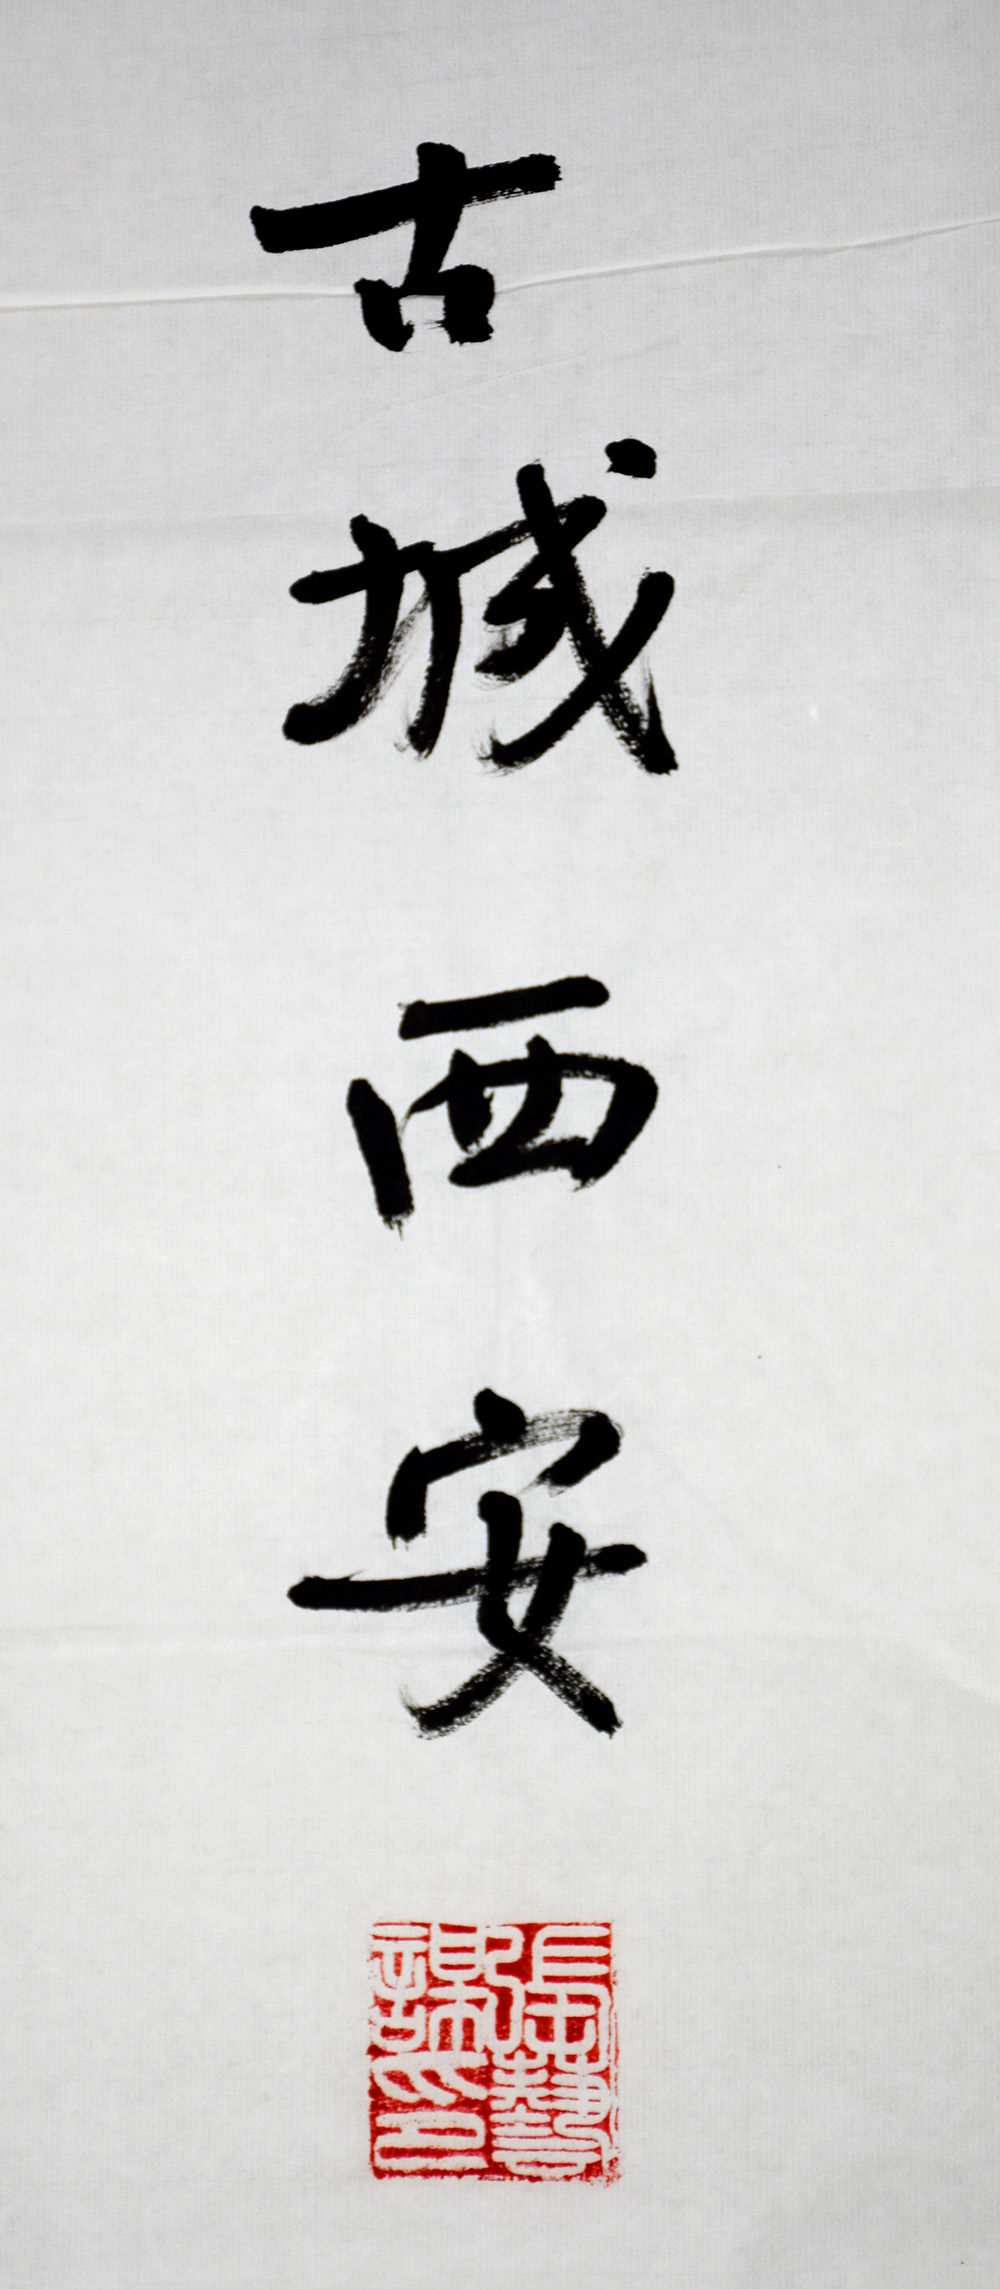 古城西安